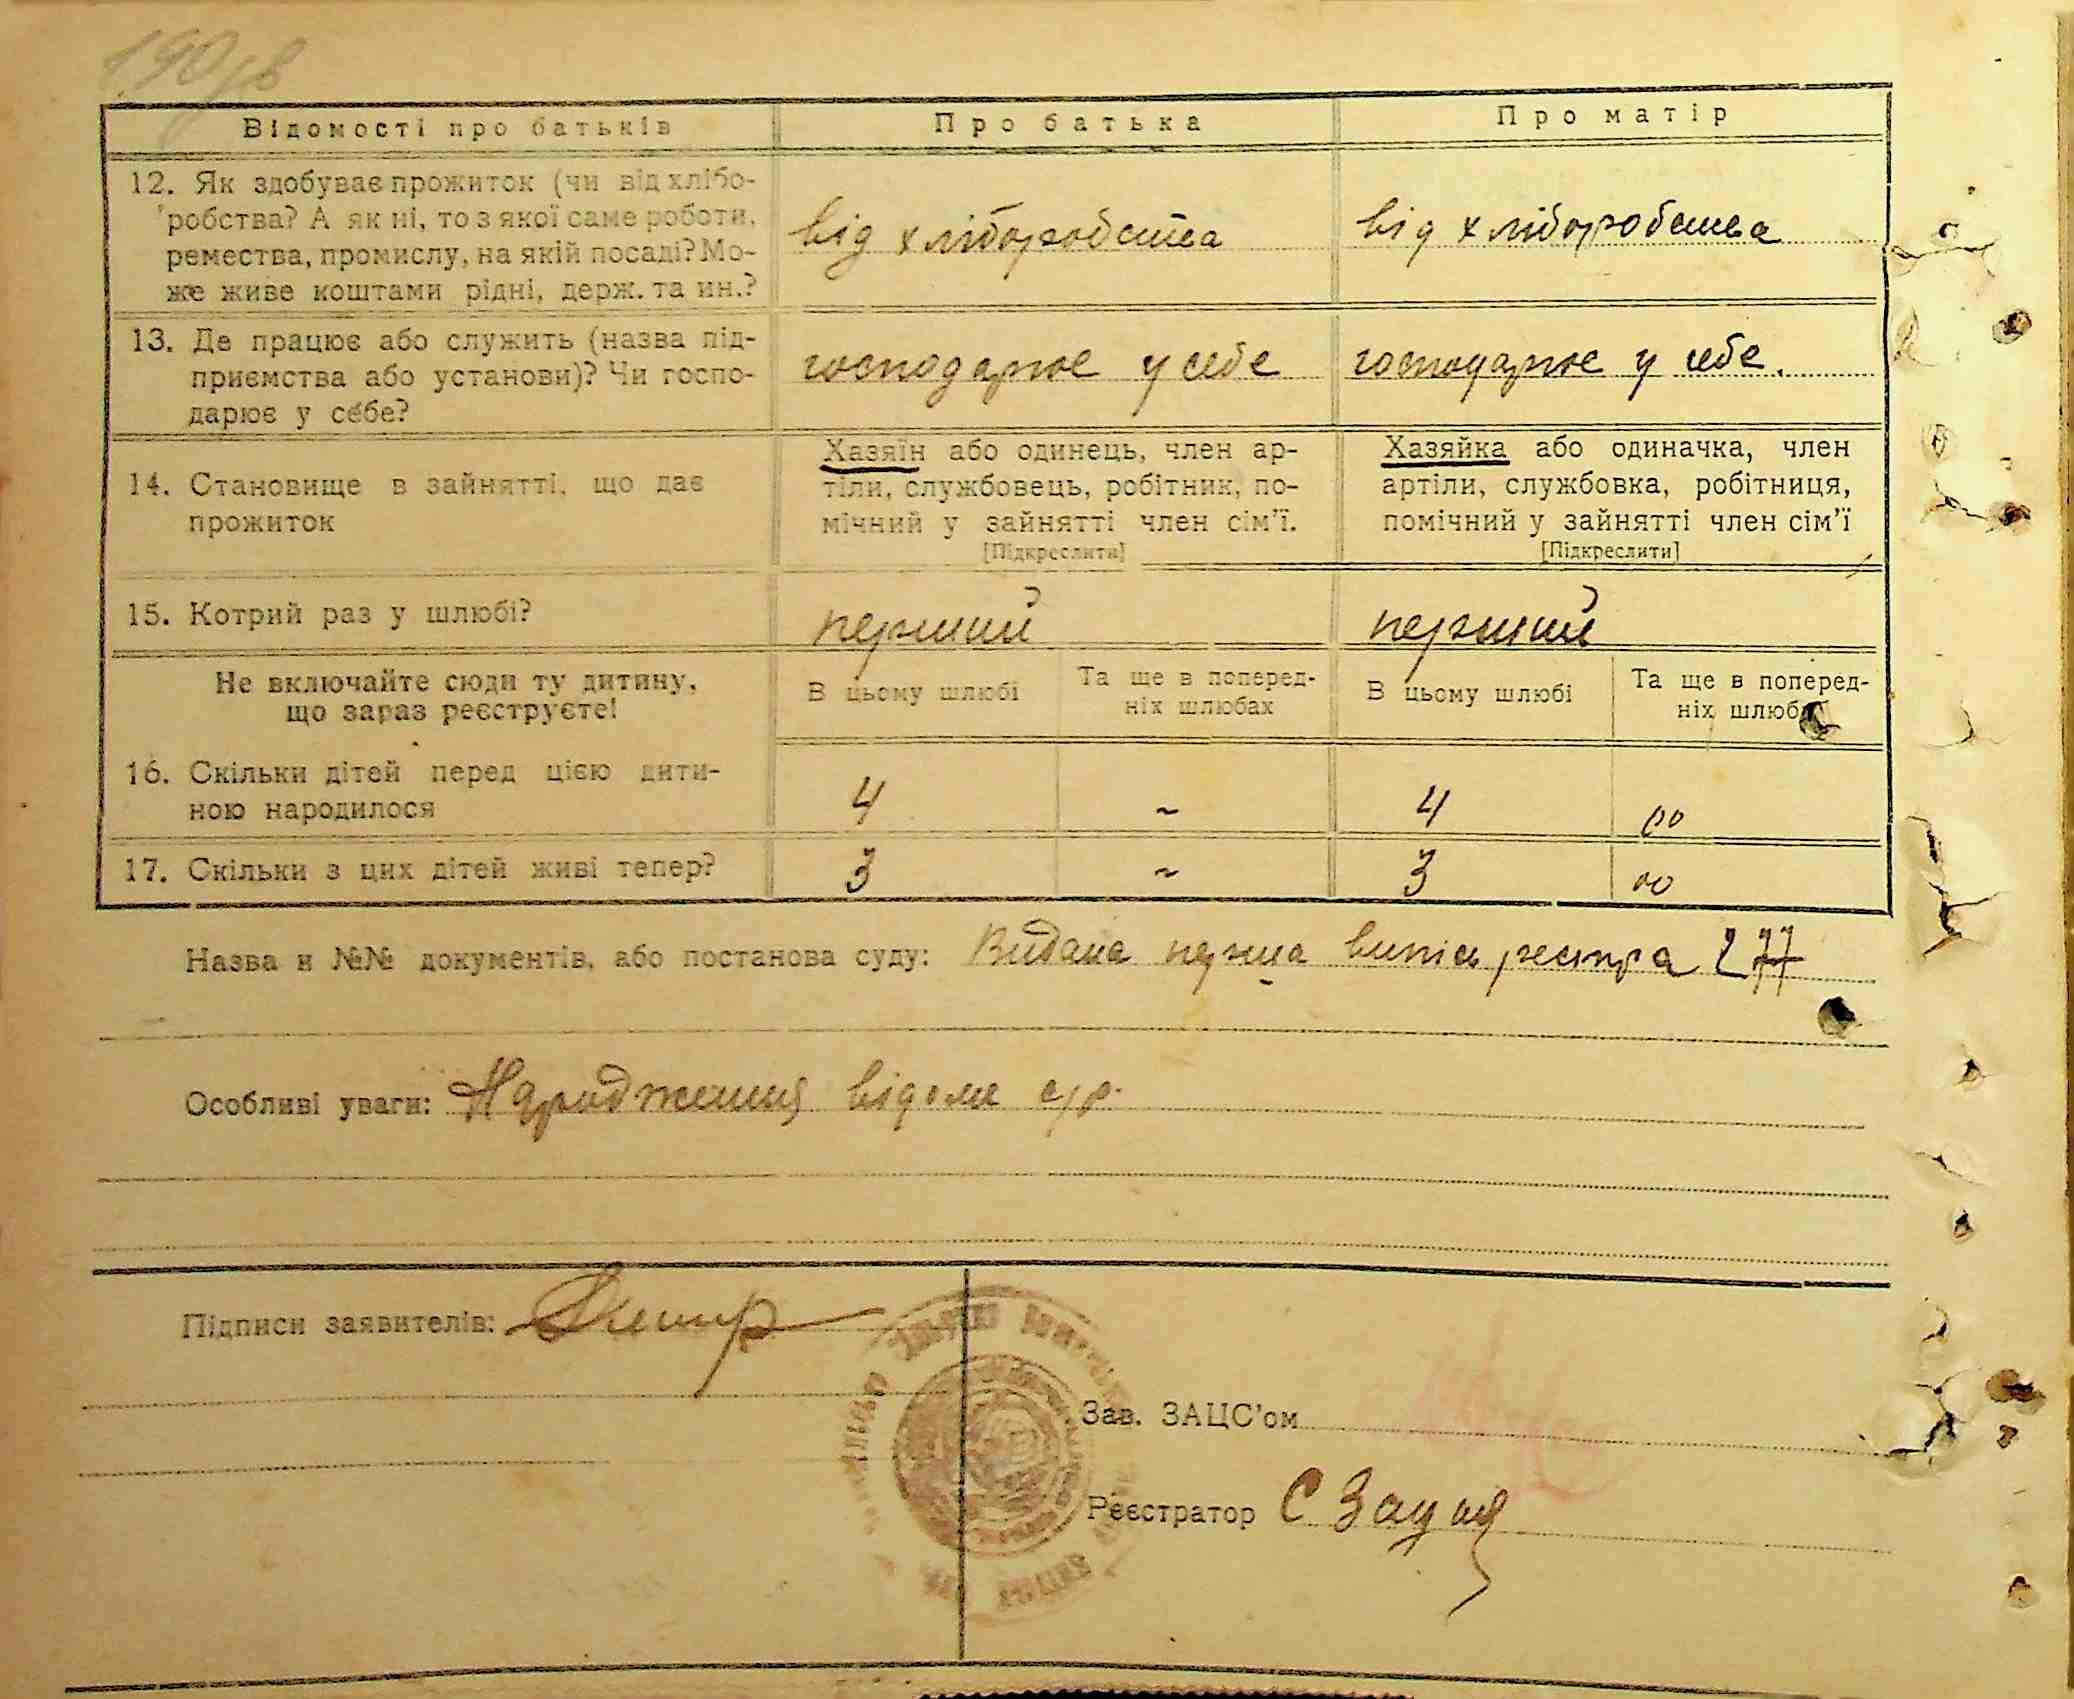 190 зв
Відомості про батьків
Про батька
Про матір
12. Як здобуває прожиток (чи від хлібо-
робства? А як ні, то з якої саме роботи,
ремества, промислу, на якій посаді? Мо-
же живе коштами рідні, держ. та ин.?
від хліборобства
від хліборобства
13. Де працює або служить (назва під-
приємства або установи)? Чи госпо-
дарює у себе?
господарює у себе
господарює у себе.
14. Становище в зайнятті, що дає
прожиток
Хазяїн або одинець, член ар-
тіли, службовець, робітник, по-
мічний у зайнятті член сім'ї.
[Підкреслити]
Хазяйка або одиначка, член
артіли, службовка, робітниця,
помічний у зайнятті член сім'ї
[Підкреслити]
15. Котрий раз у шлюбі?
перший
перший
Не включайте сюди ту дитину,
що зараз реєструєте!
В цьому шлюбі
Та ще в поперед-
ніх шлюбах
В цьому шлюбі
Та ще в поперед-
ніх шлюб
16. Скільки дітей перед цією дити-
ною народилося
4
~
4
17. Скільки з цих дітей живі тепер?
3
~
3
Назва и №№ документів, або постанова суду: Видана перша випись реєстра 277
Особливі уваги: Народження відоме с/р.
Підписи заявителів:
Зав. ЗАЦС'ом
Реєстратор С